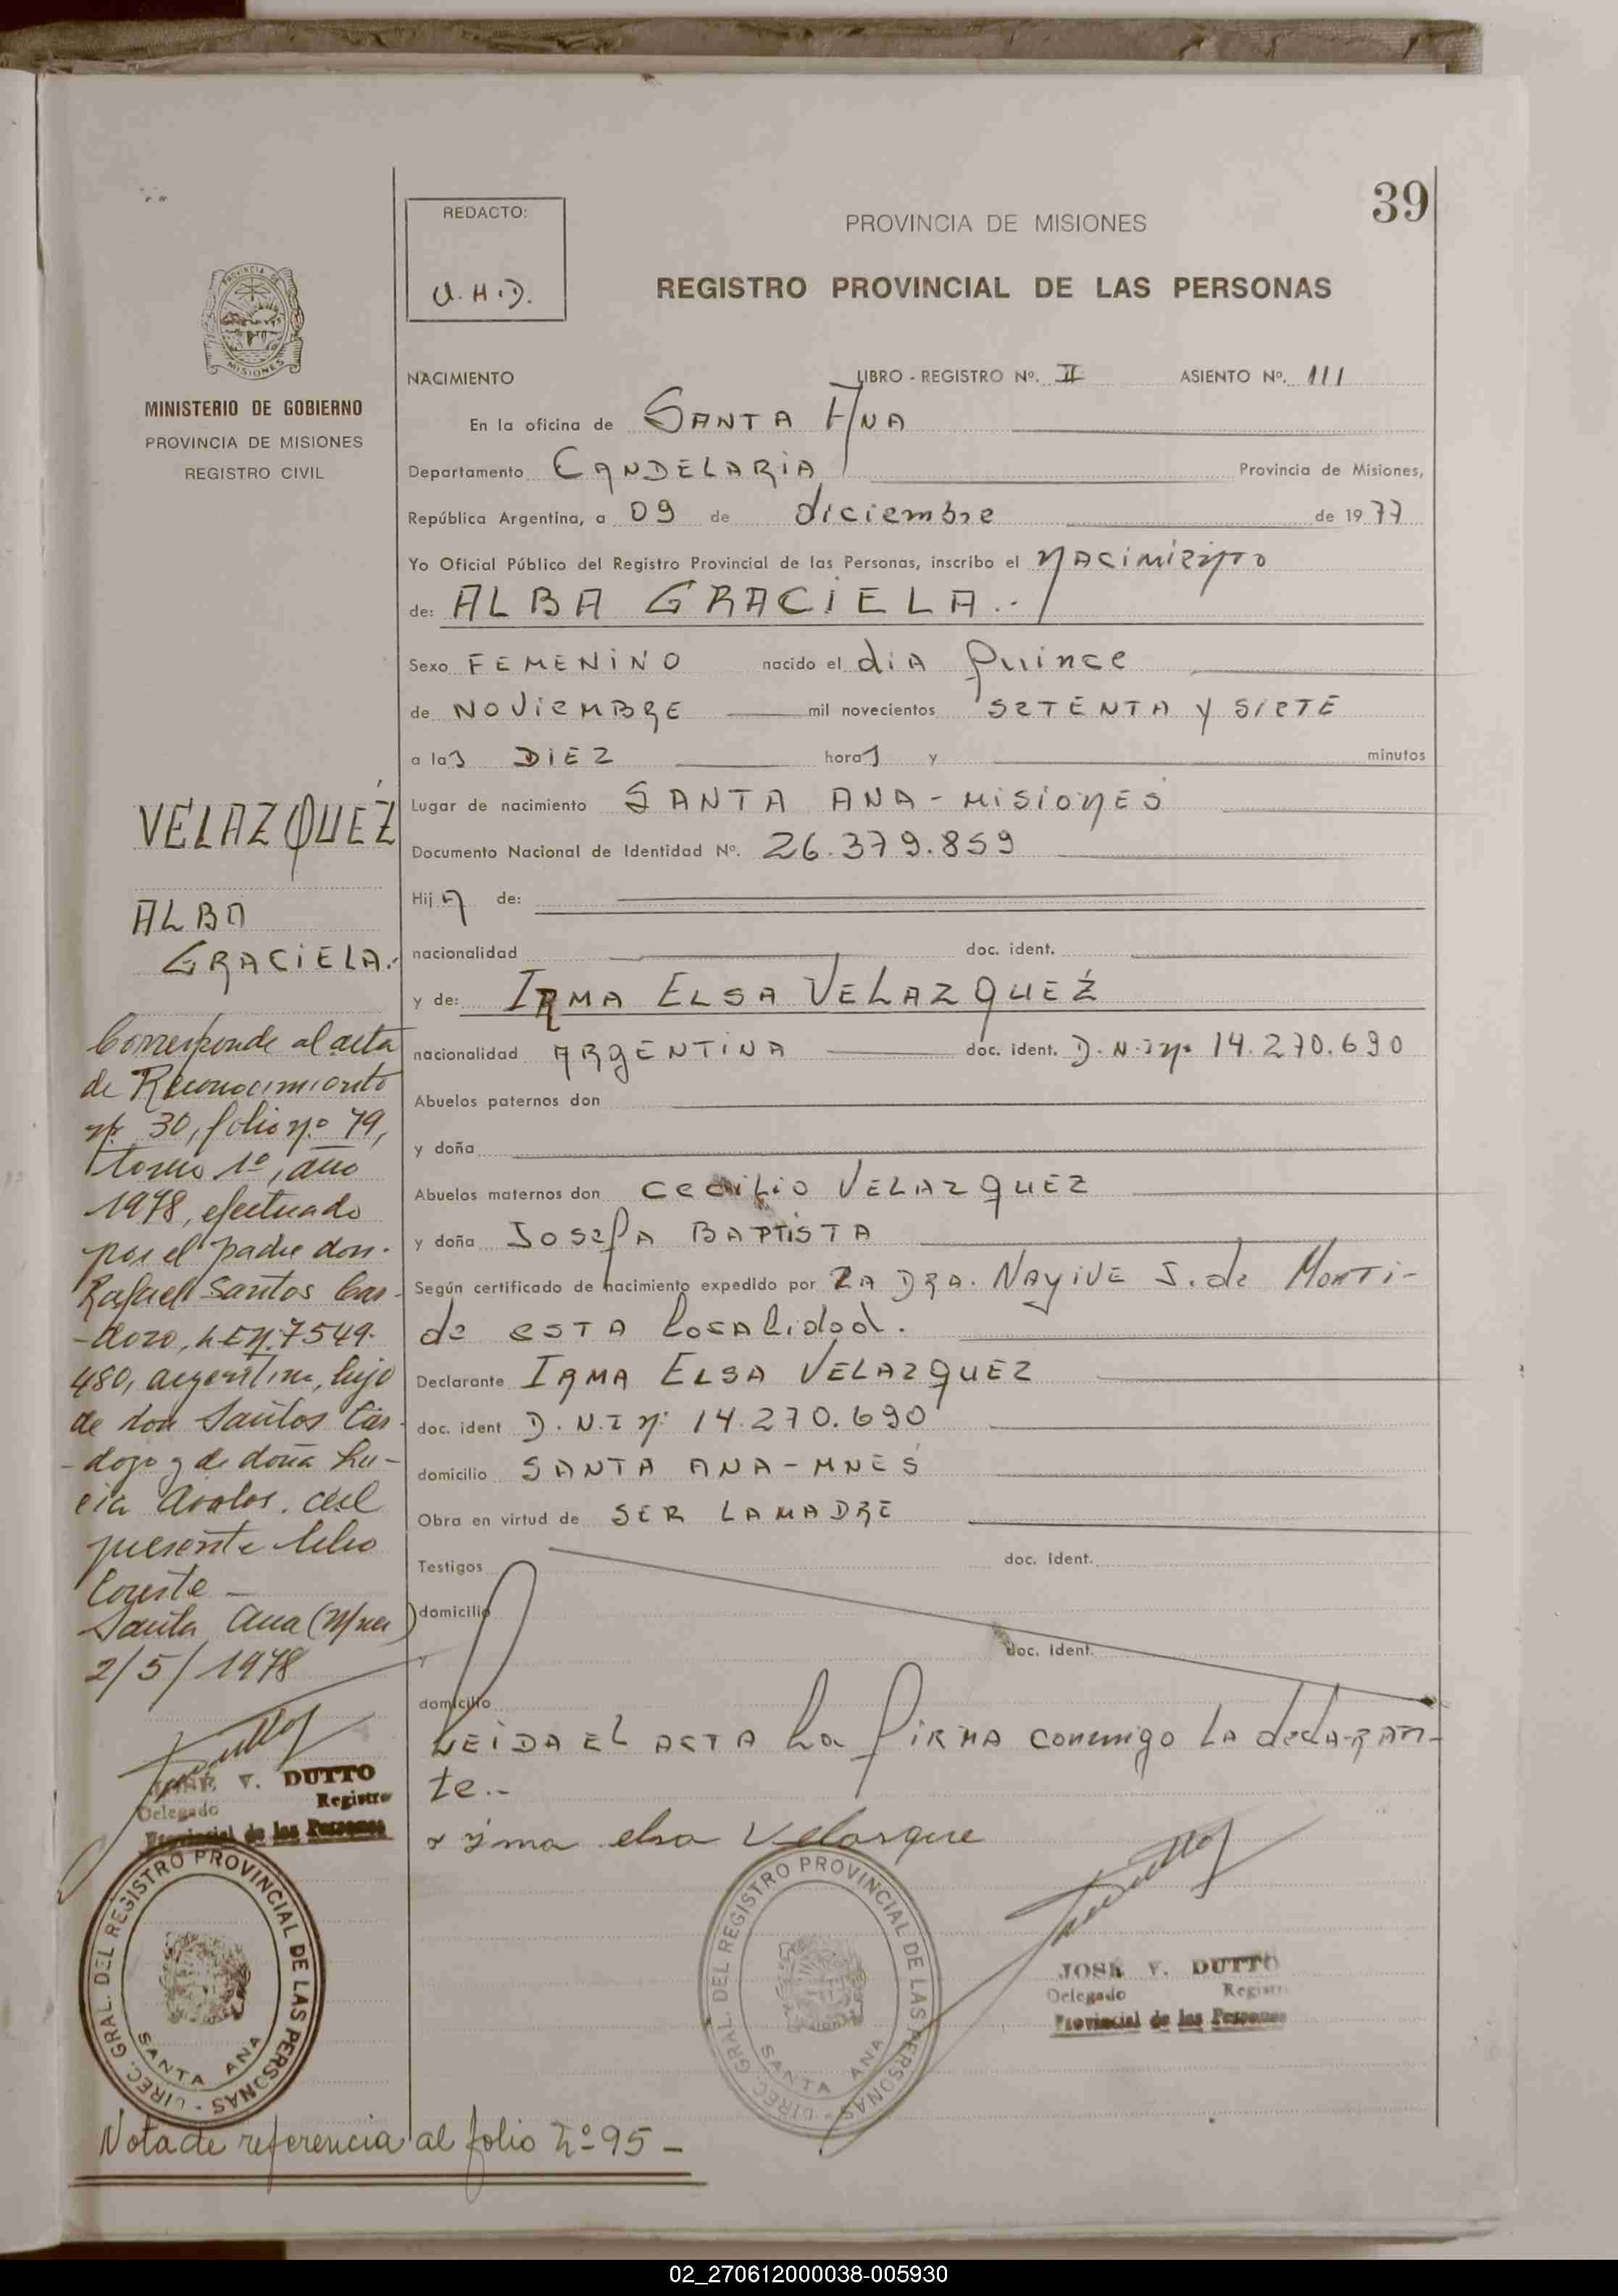 39
REDACTO:
U.H.D.
PROVINCIA DE MISIONES
REGISTRO PROVINCIAL DE LAS PERSONAS
MISIONES
MINISTERIO DE GOBIERNO
PROVINCIA DE MISIONES
REGISTRO CIVIL
NACIMIENTO LIBRO - REGISTRO Nº. II ASIENTO Nº. 111
En la oficina de SANTA ANA
Departamento CANDELARIA Provincia de Misiones,
República Argentina, a 09 de diciembre de 1977
Yo Oficial Público del Registro Provincial de las Personas, inscribo el NACIMIENTO
de: ALBA GRACIELA.-
Sexo FEMENINO nacido el diA quince
de NOVIEMBRE mil novecientos SETENTA y SIETE
a las DIEZ horas y minutos
Lugar de nacimiento SANTA ANA - MISIONES
Documento Nacional de Identidad Nº. 26.379.859
Hija de:
nacionalidad doc. ident.
y de: IRMA ELSA VELAZQUEZ
nacionalidad ARGENTINA doc. ident. D.N.I nº 14.270.690
Abuelos paternos don
y doña
Abuelos maternos don CECILIO VELAZQUEZ
y doña JOSEfA BAPTISTA
Según certificado de nacimiento expedido por LA DRA. NAyiVE S. de MONTI-
de ESTA localidad.
Declarante IRMA ELSA VELAZQUEZ
doc. ident D.N.I nº 14.270.690
domicilio SANTA ANA - MNES
Obra en virtud de SER LA MADRE
Testigos doc. ident.
domicilio
y doc. ident.
domicilio
LEIDA EL ACTA la fiRMA conmigo LA declaran-
te.-
x irma elsa Velasque
VELAZQUEZ
ALBA
GRACIELA.-
Corresponde al acta
de Reconocimiento
nº 30, folio nº 79,
tomo 1º, año
1978, efectuado
por el padre don
Rafael Santos Car-
-dozo, L E nº 7549.
480, argentino, hijo
de don Santos Car-
-dozo y de doña Lu-
cia Avalos. del
presente libro
Conste -
Santa Ana (M/nes)
2/5/1978
JOSÉ V. DUTTO
Delegado Registro
Provincial de las Personas
DIREC. GRAL. DEL REGISTRO PROVINCIAL DE LAS PERSONAS -
SANTA ANA
DIREC. GRAL. DEL REGISTRO PROVINCIAL DE LAS PERSONAS -
SANTA ANA
JOSÉ V. DUTTO
Delegado Registro
Provincial de las Personas
Nota de referencia al folio Nº 95 -
02_270612000038-005930